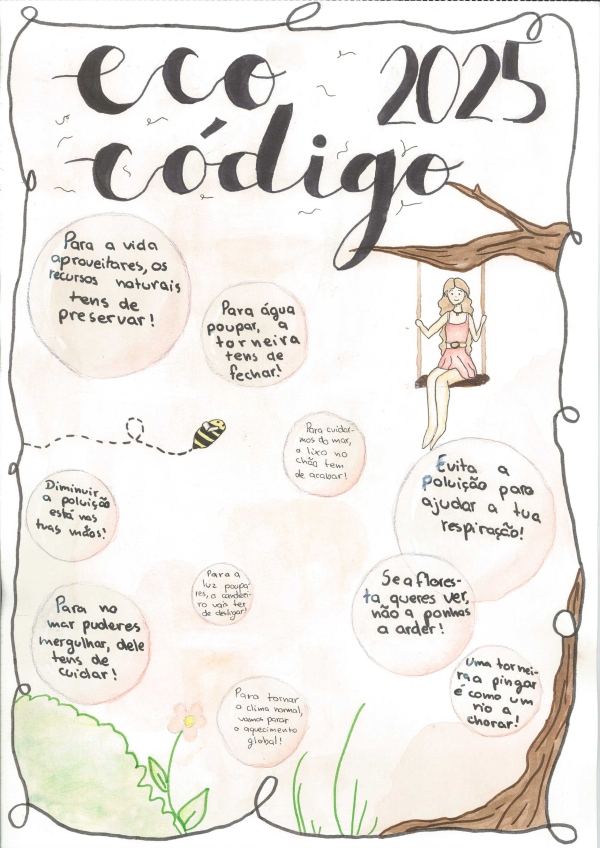 eco 2025
código
Para a vida
aproveitares, os
recursos naturais
tens de
preservar!
Para água
poupar, a
torneira
tens de
fechar!
Para cuidar-
mos do mar,
o lixo no
chão tem
de acabar!
Evita a
poluição para
ajudar a tua
respiração!
Diminuir
a poluição
está nas
tuas mãos!
Para a
luz poupa-
res, o candeei-
ro vais ter
de desligar!
Se a flores-
ta queres ver,
não a ponhas
a arder!
Para no
mar puderes
mergulhar, dele
tens de
cuidar!
Uma tornei-
ra a pingar
é como um
rio a
chorar!
Para tornar
o clima normal,
vamos parar
o aquecimento
global!